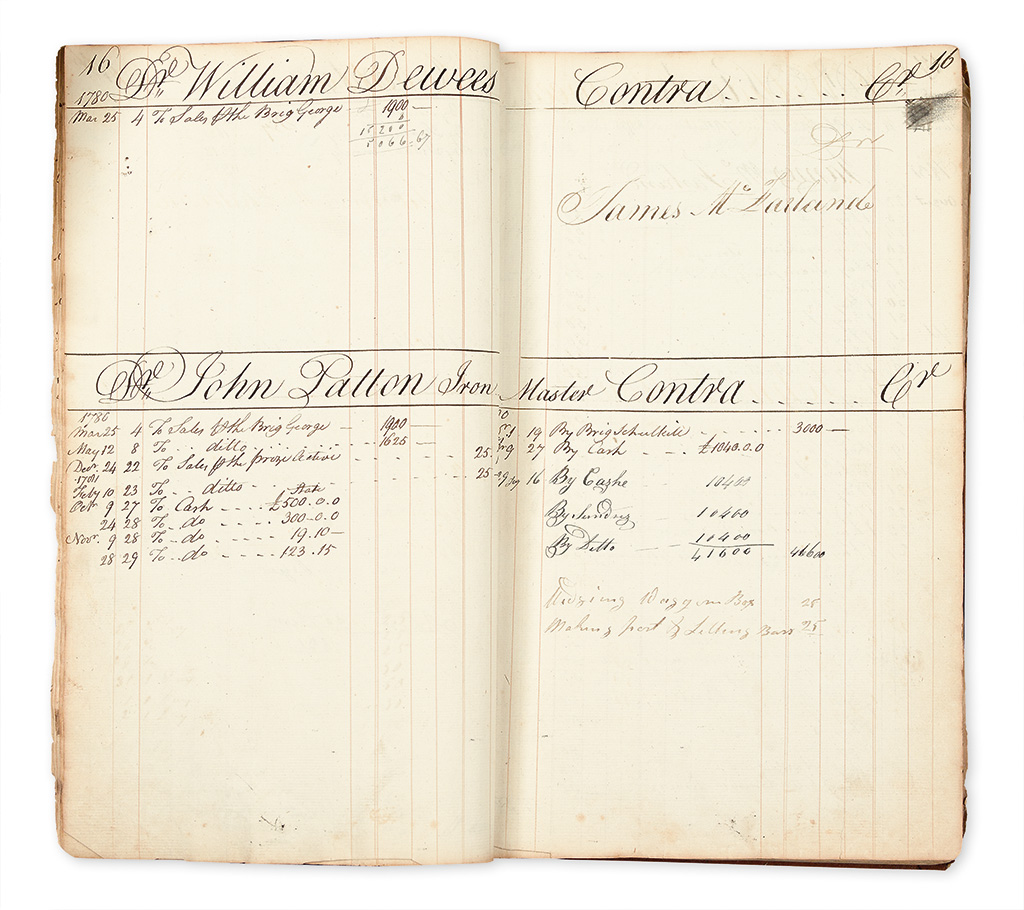 16
Dr. William Dewees
1780
Mar 25 4 To Sales of the Brig George 1900 —
15200
5066=67
Contra . . . . . . Cr. 16
Dr
James McFarland
Dr. John Patton Iron Master Contra . . . . . . Cr
1780
Mar 25 4 To Sales of the Brig George — 1900 —
May 12 8 To . ditto 1625 —
Decr. 24 22 To Sales of the prize Active 25
1781
July 10 23 To . . ditto 25
State
Octr 9 27 To Cash . . . . £500.0.0
24 28 To . do 300.0.0
Novr. 9 28 To . do 19.10 —
28 29 To . do 123.15
19 By Brig Schulkill 3000 —
9 27 By Cash £1040.0.0
16 By Cashe 10400
By Sundrys 10400
By Ditto 10400
41600 41600
Waggon Box 25
Making 25